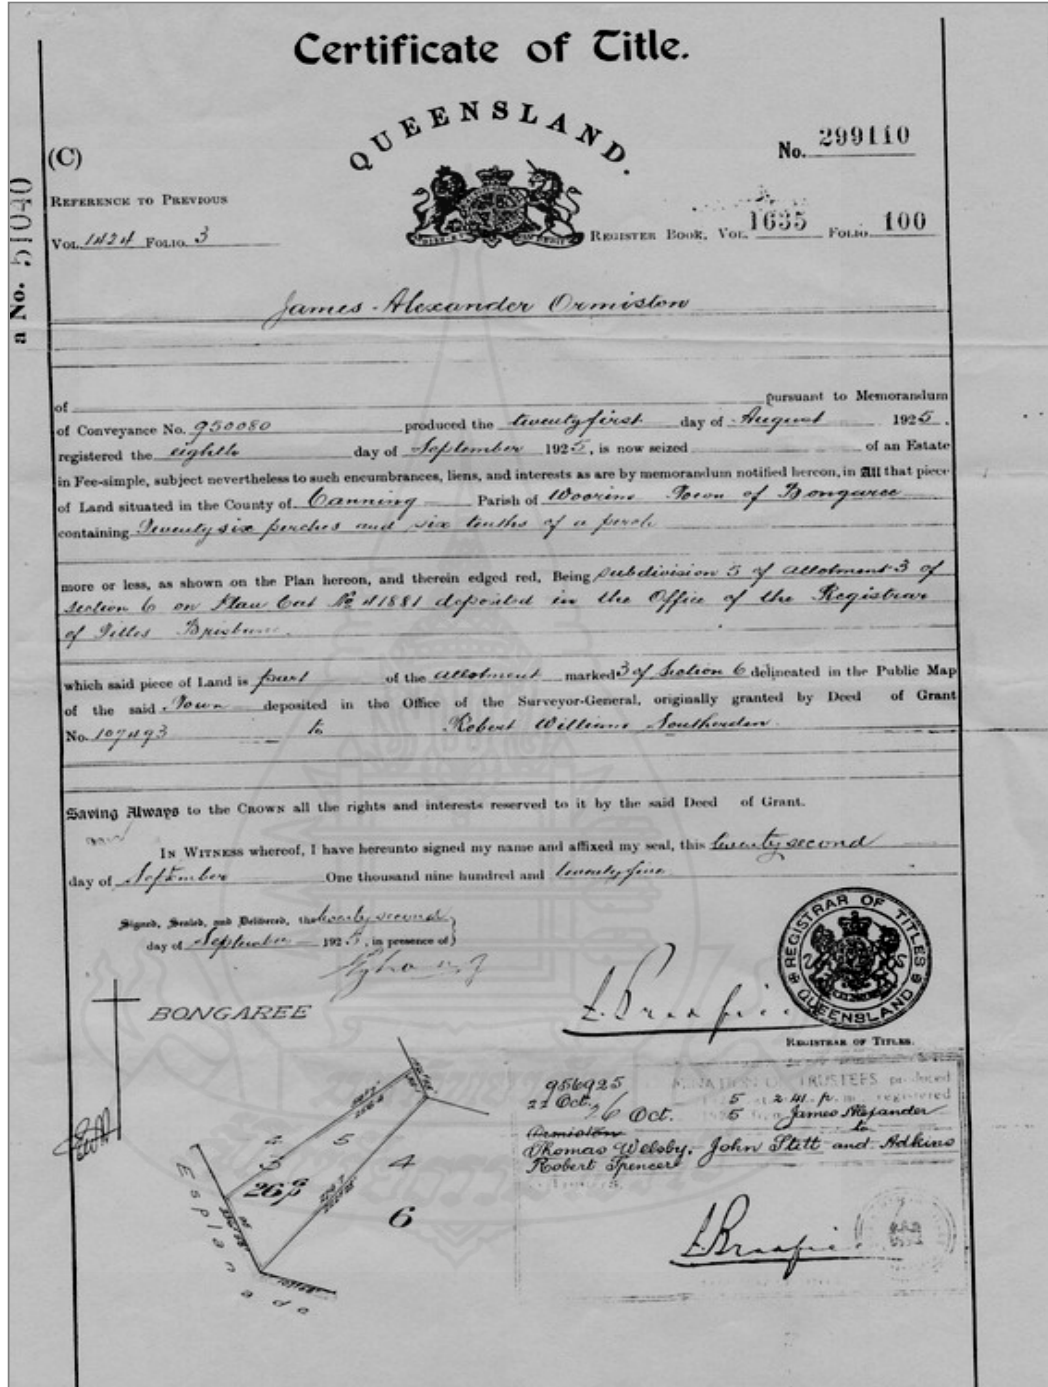 Certificate of Title.
QUEENSLAND.
(C)
No. 299110
REFERENCE TO PREVIOUS
VOL. 1424 FOLIO. 3
REGISTER BOOK, VOL. 1635 FOLIO 100
a No. 51040
James Alexander Ormiston
of pursuant to Memorandum
of Conveyance No. 950080 produced the twentyfirst day of August 1925.
registered the eighth day of September 1925, is now seized of an Estate
in Fee-simple, subject nevertheless to such encumbrances, liens, and interests as are by memorandum notified hereon, in All that piece
of Land situated in the County of Canning Parish of Woorim Town of Bongaree
containing Twenty six perches and six tenths of a perch
more or less, as shown on the Plan hereon, and therein edged red, Being subdivision 5 of allotment 3 of
section 6 on Plan Cat No 41881 deposited in the Office of the Registrar
of Titles Brisbane.
which said piece of Land is part of the allotment marked 3 of Section 6 delineated in the Public Map
of the said Town deposited in the Office of the Surveyor-General, originally granted by Deed of Grant
No. 107493 to Robert William Southerden
Saving Always to the CROWN all the rights and interests reserved to it by the said Deed of Grant.
IN WITNESS whereof, I have hereunto signed my name and affixed my seal, this twenty second
day of September One thousand nine hundred and twenty five
Signed, Sealed, and Delivered, the twenty second
day of September 1925, in presence of
REGISTRAR OF TITLES
QUEENSLAND
REGISTRAR OF TITLES.
BONGAREE
4
5
3
4
6
Esplanade
956925 NOMINATION OF TRUSTEES produced
22 Oct. 5 2.41 p. m registered
26 Oct. 5 James Alexander
Ormiston to
Thomas Welsby, John Stett and Adkins
Robert Spencer